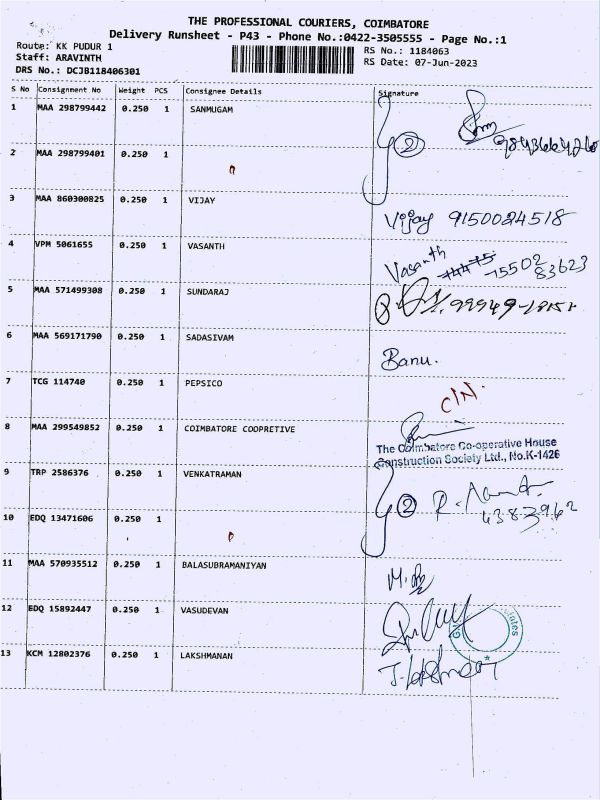 THE PROFESSIONAL COURIERS, COIMBATORE
Delivery Runsheet - P43 - Phone No.:0422-3505555 - Page No.:1
Route: KK PUDUR 1 RS No.: 1184063
Staff: ARAVINTH RS Date: 07-Jun-2023
DRS No.: DCJB118406301
S No Consignment No Weight PCS Consignee Details Signature
1 MAA 298799442 0.250 1 SANMUGAM
2
2 MAA 298799401 0.250 1
3 MAA 860300825 0.250 1 VIJAY Vijay 9150024518
4 VPM 5061655 0.250 1 VASANTH Vasanth 75502
83623
5 MAA 571499308 0.250 1 SUNDARAJ
6 MAA 569171790 0.250 1 SADASIVAM Banu.
7 TCG 114740 0.250 1 PEPSICO
8 MAA 299549852 0.250 1 COIMBATORE COOPRETIVE
The Coimbatore Co-operative House
Construction Society Ltd., No.K-1426
9 TRP 2586376 0.250 1 VENKATRAMAN
2
4383962
10 EDQ 13471606 0.250 1
11 MAA 570935512 0.250 1 BALASUBRAMANIYAN
12 EDQ 15892447 0.250 1 VASUDEVAN
13 KCM 12802376 0.250 1 LAKSHMANAN